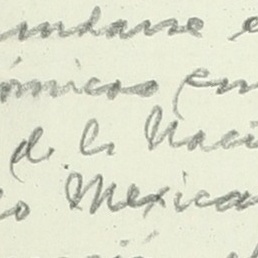 undarse e
ómicos em
de la Naci
co Mexican